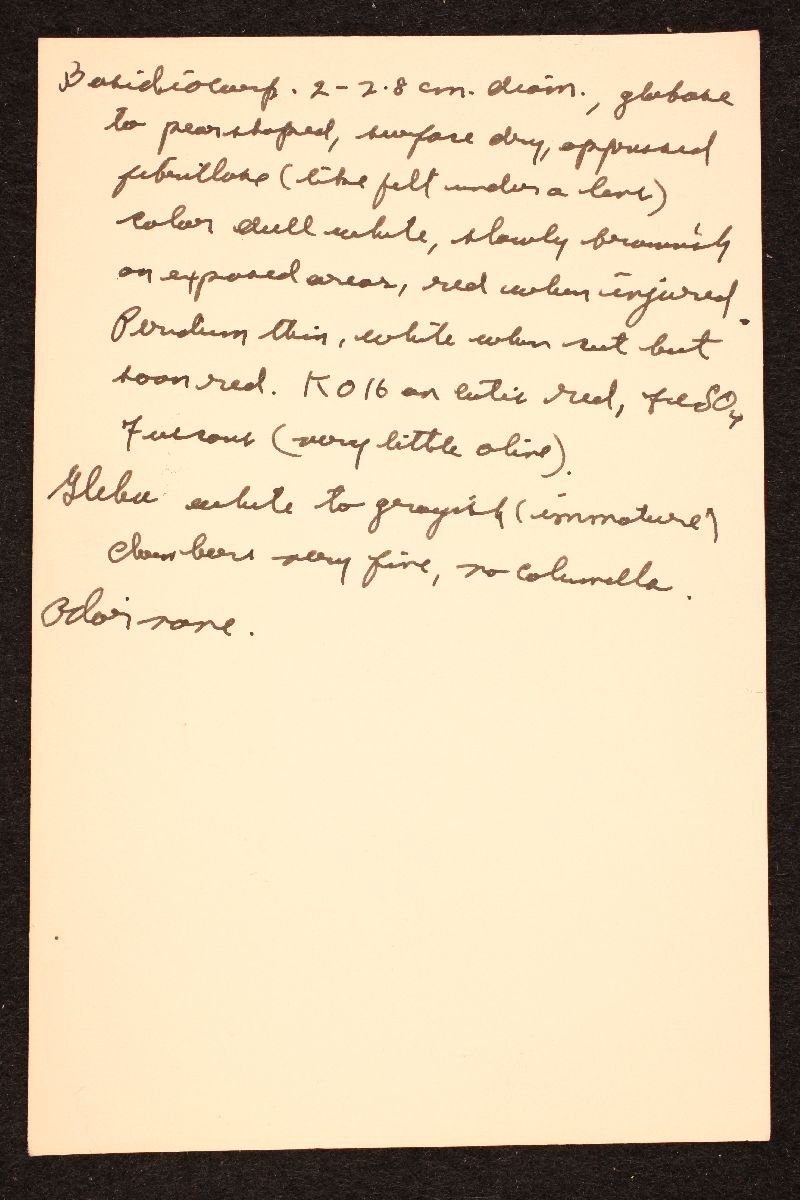 Basidiocarp. 2-2.8 cm. diam., globose
to pearshaped, surface dry, appressed
fibrillose (like felt under a lens)
color dull white, slowly brownish
on exposed areas, red when injured.
Peridium thin, white when cut but
soon red. KOH on cutis red, FeSO4
Fuscous (very little olive).
Gleba white to grayish (immature)
Chambers very fine, no columella.
Odor none.